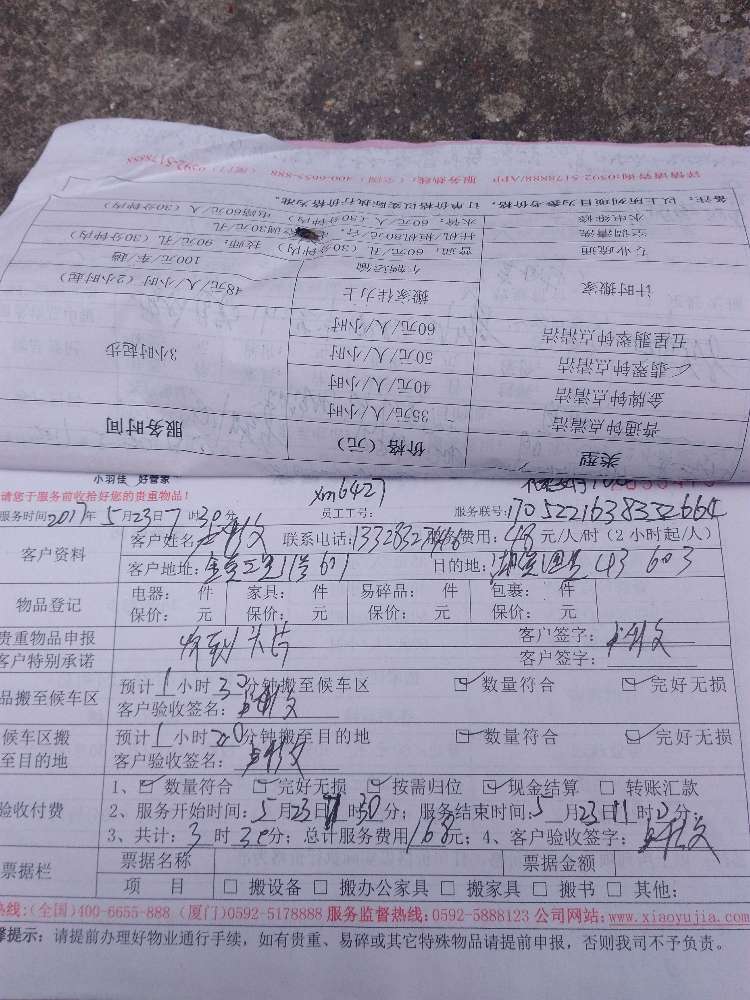 详情请咨询:0592-5178888/APP 服务热线:(全国)400-6655-888 (厦门)0592-5178888
备注:以上所列项目为参考价格,订单价格以实际执行价格为准。
水电维修 水管:60元/人(30分钟内) 电路60元/人(30分钟内)
空调清洗 挂机/柜机80元/台,
专业疏通 普通:60元/孔(30分钟内) 技师:90元/孔(30分钟内)
计时搬家 车辆运输 100元/车/趟
搬家佳力士 48元/人/小时(2小时起)
五星翡翠钟点清洁 60元/人/小时
翡翠钟点清洁 50元/人/小时 3小时起步
金牌钟点清洁 40元/人/小时
普通钟点清洁 35元/人/小时
类型 价格(元) 服务时间
小羽佳 好管家
请您于服务前收拾好您的贵重物品!
xm6427
服务时间2017年5月23日7时30分 员工工号: 服务联号:1705221638332664
客户资料 客户姓名: 联系电话: 服务费用:48元/人/时(2小时起/人)
客户地址: 目的地: 43 603
物品登记 电器: 件 家具: 件 易碎品: 件 包裹: 件
保价: 元 保价: 元 保价: 元 保价: 元
贵重物品申报 客户签字:
客户特别承诺 客户签字:
品搬至候车区 预计1小时30分钟搬至候车区 数量符合 完好无损
客户验收签名:
候车区搬至目的地 预计1小时20分钟搬至目的地 数量符合 完好无损
客户验收签名:
验收付费 1、数量符合 完好无损 按需归位 现金结算 转账汇款
2、服务开始时间:5月23日7时30分;服务结束时间:5月23日11时0分;
3、共计:3时30分;总计服务费用168元;4、客户验收签字:
票据栏 票据名称 票据金额
项 目 搬设备 搬办公家具 搬家具 搬书 其他:
热线:(全国)400-6655-888 (厦门)0592-5178888 服务监督热线:0592-5888123 公司网站:www.xiaoyujia.com
馨提示:请提前办理好物业通行手续,如有贵重、易碎或其它特殊物品请提前申报,否则我司不予负责。